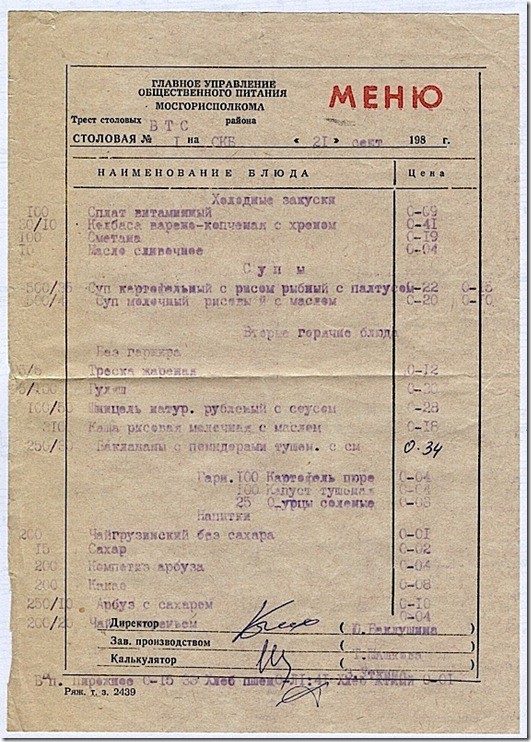 ГЛАВНОЕ УПРАВЛЕНИЕ
ОБЩЕСТВЕННОГО ПИТАНИЯ
МОСГОРИСПОЛКОМА
МЕНЮ
Трест столовых ВТС района
СТОЛОВАЯ № 1 на СКБ « 21 » сент 198 г.
НАИМЕНОВАНИЕ БЛЮДА Цена
Холодные закуски
100 Сплат витаминный 0-09
30/10 Колбаса варено-копченая с хреном 0-41
100 Сметана 0-19
10 Масло сливочнее 0-04
Супы
500/35 Суп картофельный с рисом рыбный с палтусом 0-22 0-18
500/4 Суп молочный рисовый с маслом 0-20 0-10
Вторые горячие блюда
Без гарнира
Треска жареная 0-12
Гуляш 0-30
100/50 Шницель натур. рубленый с соусом 0-28
310 Каша рисовая молочная с маслом 0-18
250/30 Баклажаны с помидорами тушен. с см 0-34
Гарн. 100 Картофель пюре 0-04
100 Капуст тушеная 0-04
25 О урцы соленые 0-03
Напитки
200 Чайгрузинский без сахара 0-01
15 Сахар 0-02
200 Компотиз арбуза 0-04
200 Какао 0-08
250/10 Арбуз с сахаром 0-10
200/25 Чай 0-04
Директор (Ю.Баклушина)
Зав. производством (Т.)
Калькулятор ( )
В п. Пирожнее 0-15 33 Хлеб 0-01
Ряж. т. з. 2439